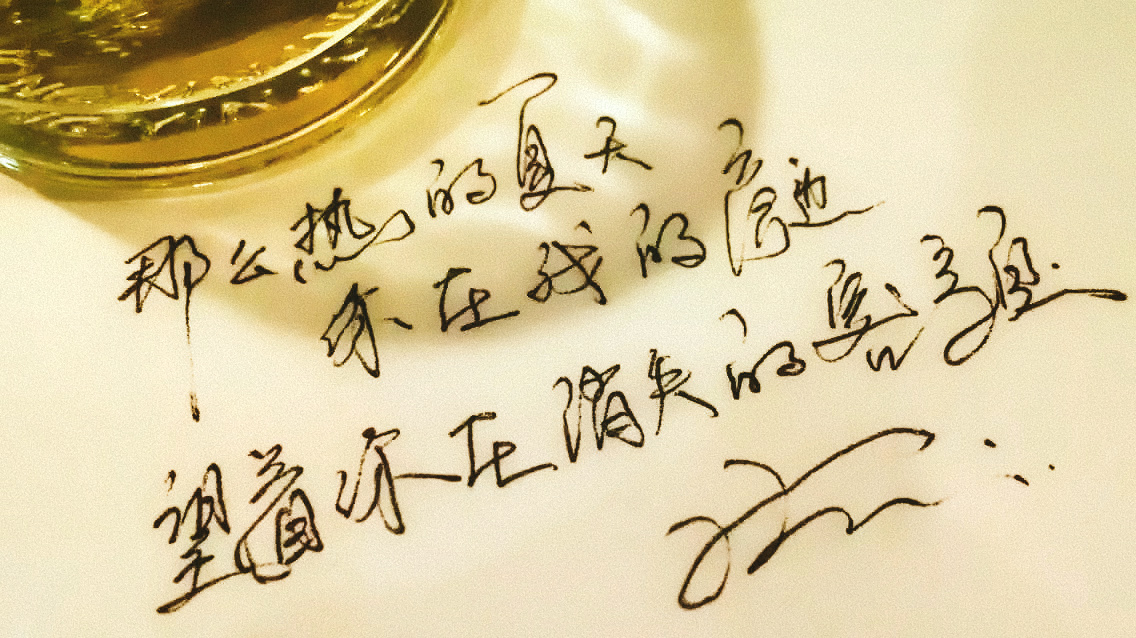 那么热的夏天
你在我的旁边
望着你在消失的